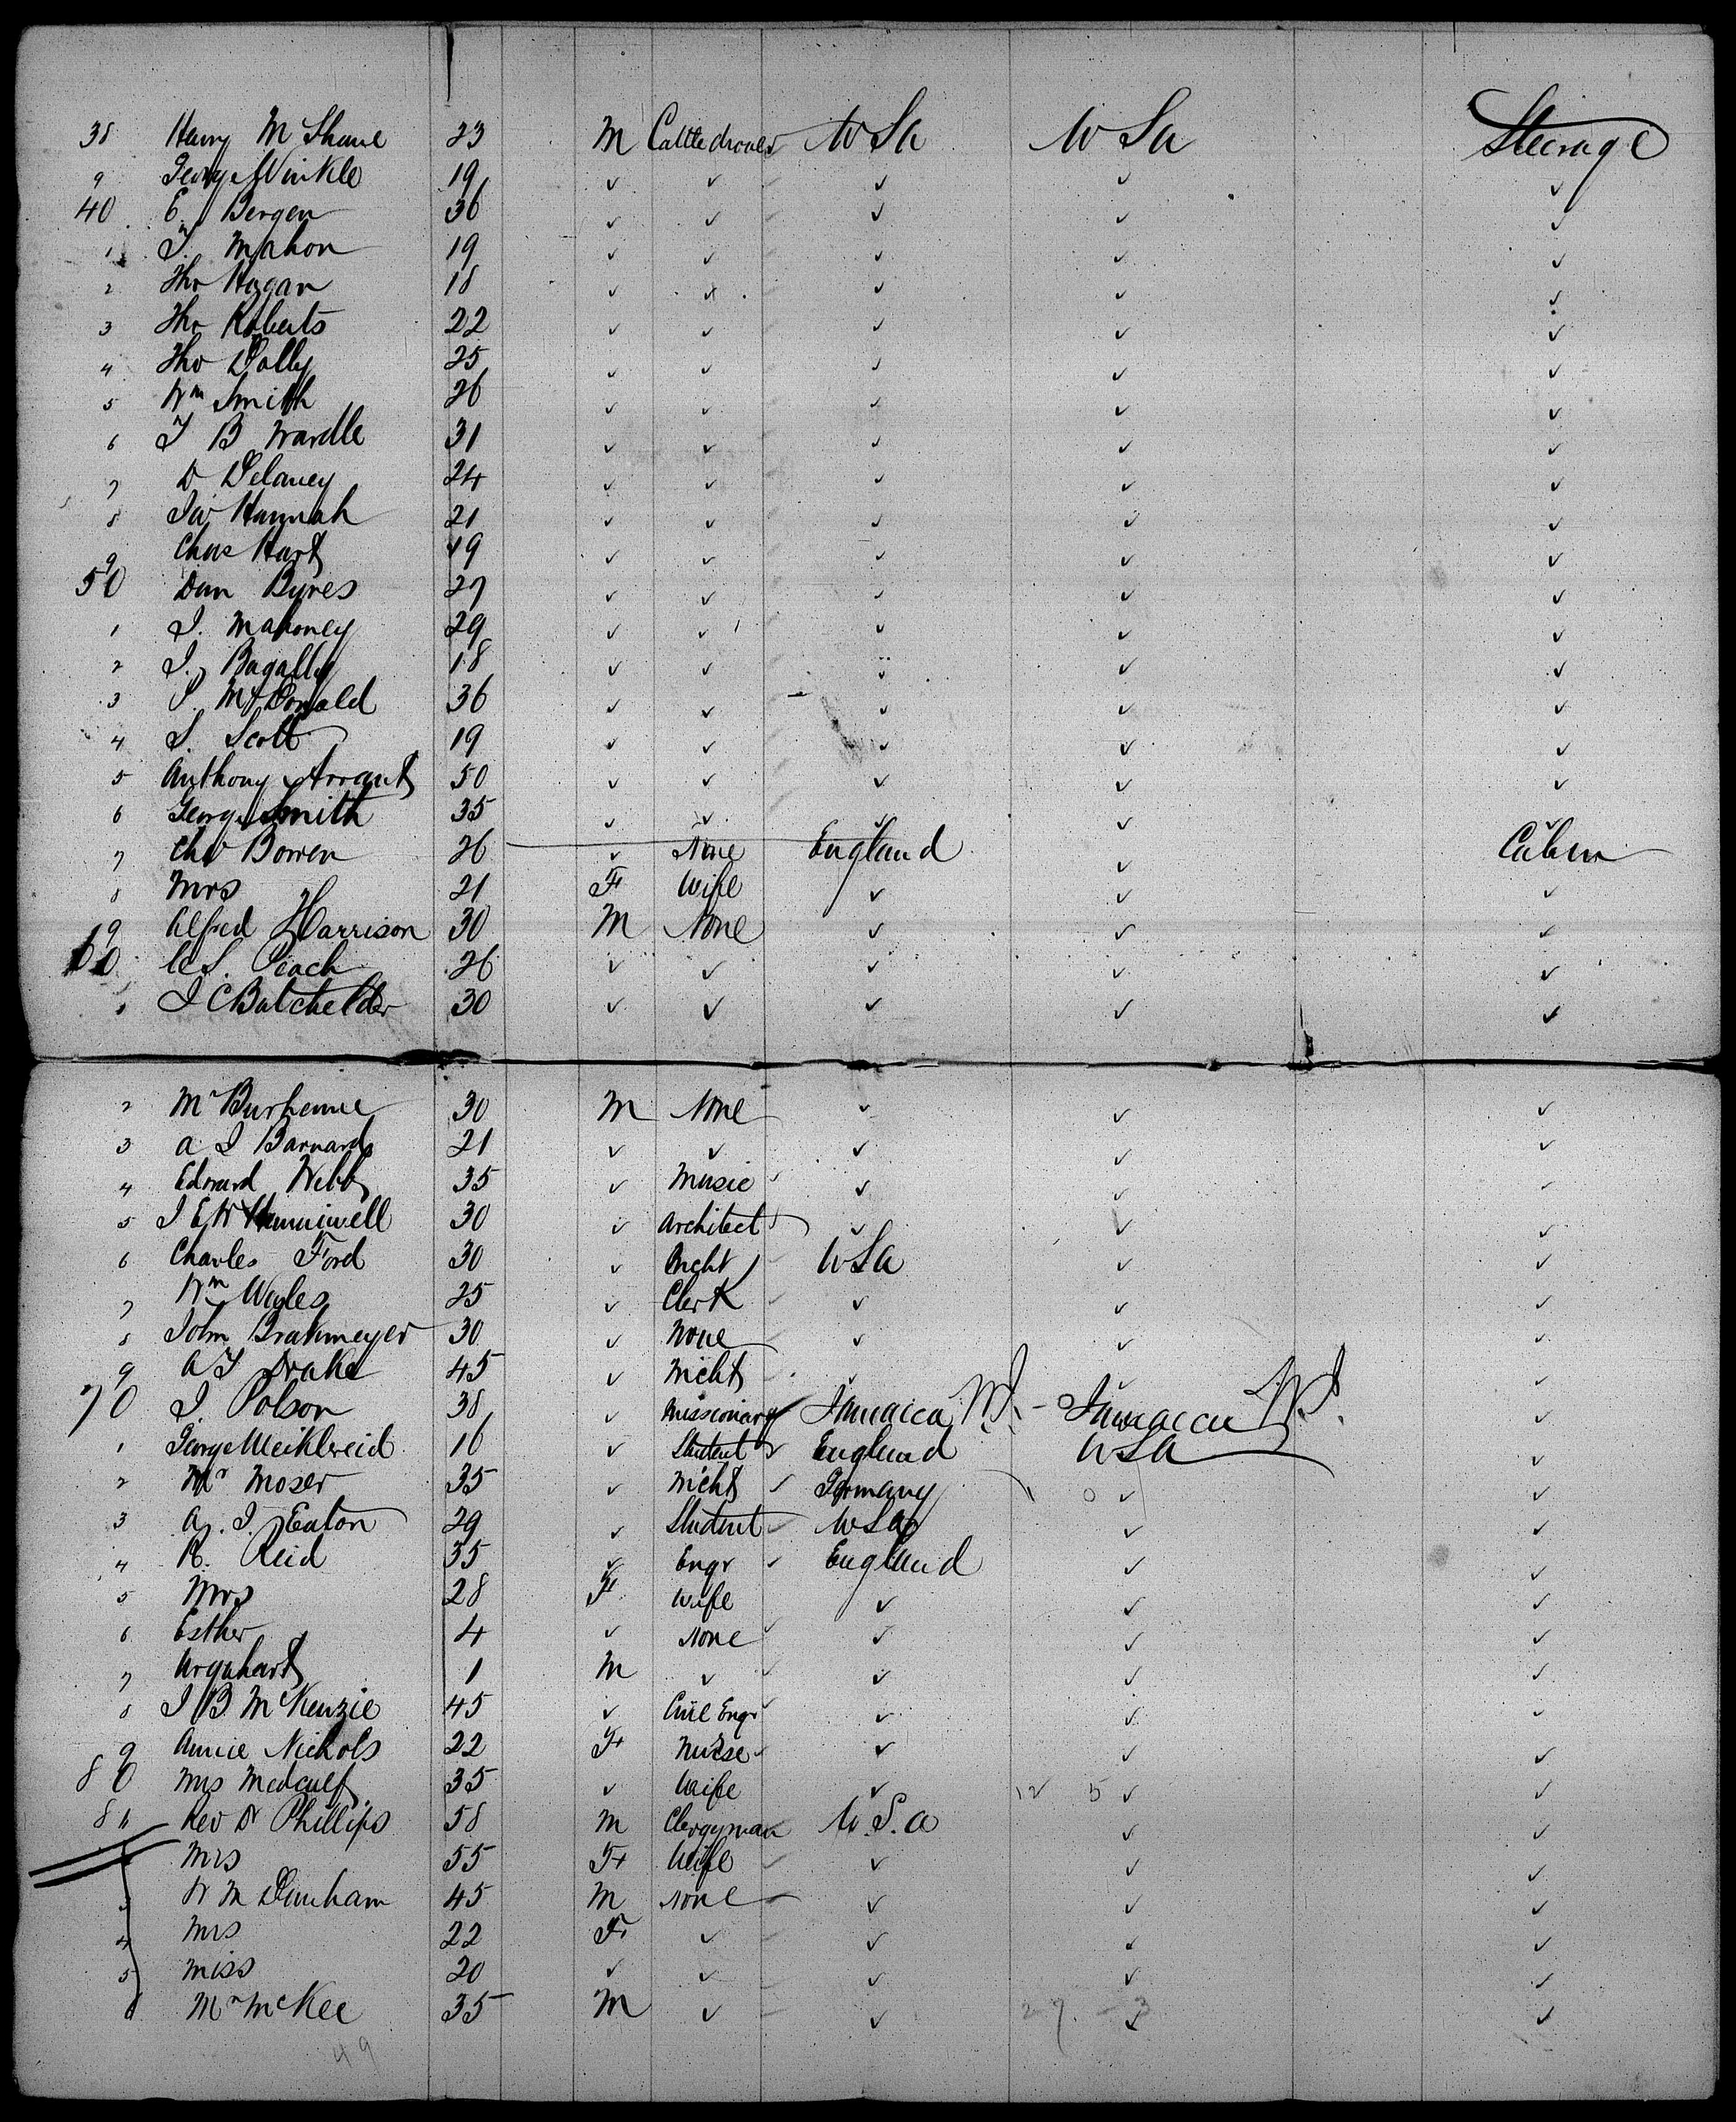 38 Henry McShane 23 M Cattledrover USa USa Steerage
9 George Winkle 19 ✓ ✓ ✓ ✓ ✓
40 E. Bergen 36 ✓ ✓ ✓ ✓ ✓
1 J. Mahon 19 ✓ ✓ ✓ ✓ ✓
2 Tho Hogan 18 ✓ ✓ ✓ ✓ ✓
3 Tho Roberts 22 ✓ ✓ ✓ ✓ ✓
4 Tho Dolly 25 ✓ ✓ ✓ ✓ ✓
5 Wm Smith 26 ✓ ✓ ✓ ✓ ✓
6 J B Wardle 31 ✓ ✓ ✓ ✓ ✓
7 D Delaney 24 ✓ ✓ ✓ ✓ ✓
8 Jas Hannah 21 ✓ ✓ ✓ ✓ ✓
9 Chas Hart 19 ✓ ✓ ✓ ✓ ✓
50 Dan Byres 27 ✓ ✓ ✓ ✓ ✓
1 J. Mahoney 29 ✓ ✓ ✓ ✓ ✓
2 J. Bagally 18 ✓ ✓ " ✓ ✓
3 J. McDonald 36 ✓ ✓ ✓ ✓ ✓
4 S. Scott 19 ✓ ✓ ✓ ✓ ✓
5 Anthony Arrant 50 ✓ ✓ ✓ ✓ ✓
6 George Smith 35 ✓ ✓ ✓ ✓ ✓
7 Chs Bowen 26 ✓ None England ✓ Cabin
8 Mrs 21 F Wife ✓ ✓ ✓
9 Alfred Harrison 30 M None ✓ ✓ ✓
60 C S. Peach 26 ✓ ✓ ✓ ✓ ✓
1 J C Batchelder 30 ✓ ✓ ✓ ✓ ✓
2 Mr 30 M None ✓ ✓ ✓
3 A J Barnard 21 ✓ ✓ ✓ ✓ ✓
4 Edward Webb 35 ✓ Music ✓ ✓ ✓
5 J E W Hunniwell 30 ✓ Architect ✓ ✓ ✓
6 Charles Ford 30 ✓ Mcht USa ✓ ✓
7 Wm Wales 25 ✓ Clerk ✓ ✓ ✓
8 John Brakmeyer 30 ✓ None ✓ ✓ ✓
9 A J Drake 45 ✓ Mcht ✓ ✓ ✓
70 J. Polson 38 ✓ Missionary Jamaica W.I. - Jamaica W.I. ✓
1 George Meiklereid 16 ✓ Student England USa ✓
2 Mr Moser 35 ✓ Mcht Germany ✓ ✓
3 A. J. Eaton 29 ✓ Student USa ✓ ✓
4 R. Reid 35 ✓ Engr England ✓ ✓
5 Mrs 28 F Wife ✓ ✓ ✓
6 Esther 4 ✓ None ✓ ✓ ✓
7 Urquhart 1 M ✓ ✓ ✓ ✓
8 J B McKenzie 45 ✓ Civil Engr ✓ ✓ ✓
9 Annie Nichols 22 F Nurse ✓ ✓ ✓
80 Mrs Medcalf 35 ✓ Wife ✓ ✓ ✓
81 Rev Dr Phillips 58 M Clergyman U.S.a ✓ ✓
Mrs 55 F Wife ✓ ✓ ✓
3 W M Dunham 45 M None ✓ ✓ ✓
4 Mrs 22 F ✓ ✓ ✓ ✓
5 Miss 20 ✓ ✓ ✓ ✓ ✓
6 Mr McKee 35 M ✓ ✓ ✓ ✓
49